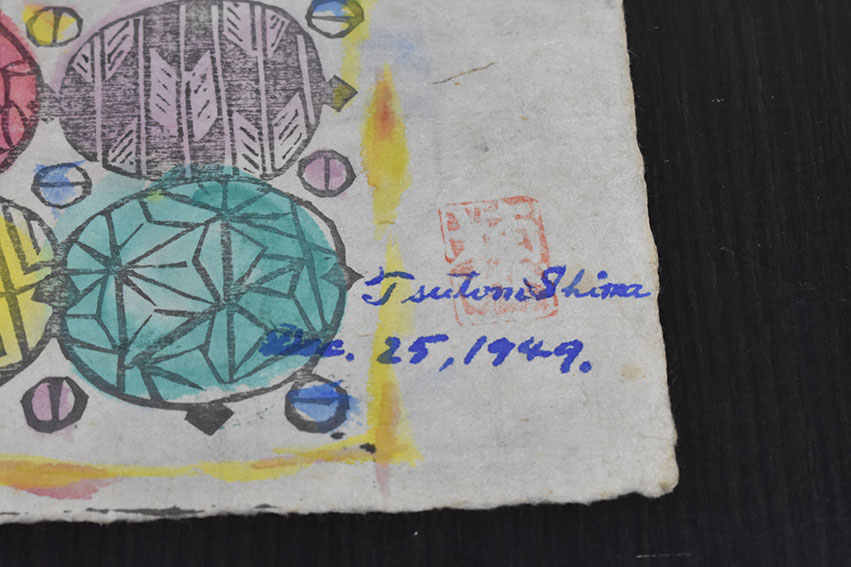 Tsutomu Shima
Dec. 25, 1949.